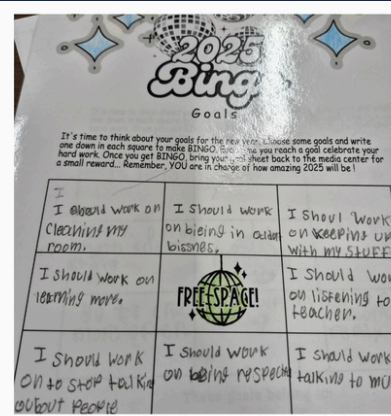 2025
Bingo
Goals
It's time to think about your goals for the new year. Choose some goals and write
one down in each square to make BINGO. you reach a goal celebrate your
hard work. Once you get BINGO, bring your goal sheet back to the media center for
a small reward... Remember, YOU are in charge of how amazing 2025 will be!
I
I should work on
cleaning my
room.
I Should work
on bieing in
bissnes.
I Shoul Work
on Keeping up
with my STUFF
I Should Work on
learning more.
FREE SPACE!
I Should wor
on listening to
teacher.
I Should Work
on to stop talking
about People
I Should Work
on being respectful
I Should work
talking to mu